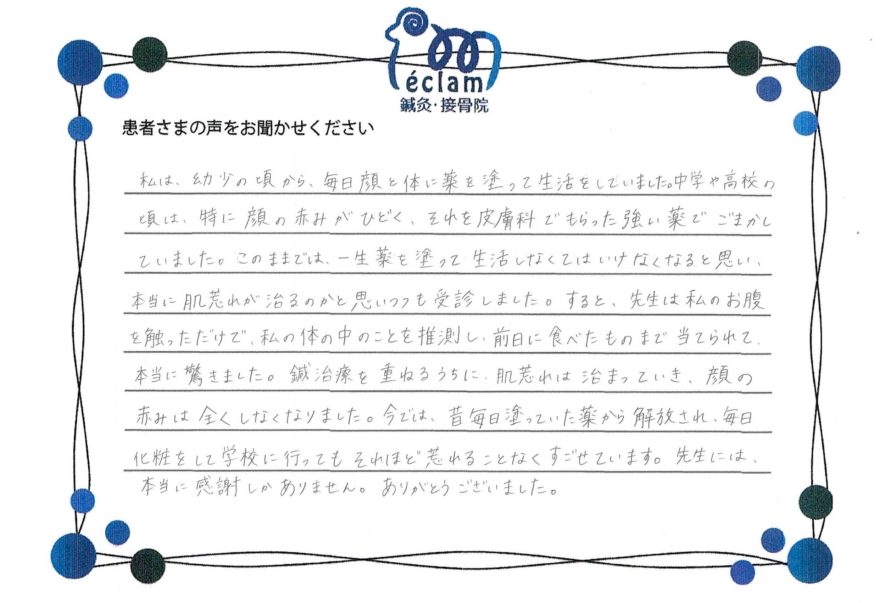 éclam
鍼灸・接骨院
患者さまの声をお聞かせください
私は、幼少の頃から、毎日顔と体に薬を塗って生活をしていました。中学や高校の
頃は、特に顔の赤みがひどく、それを皮膚科でもらった強い薬でごまかし
ていました。このままでは、一生薬を塗って生活しなくてはいけなくなると思い、
本当に肌荒れが治るのかと思いつつも受診しました。すると、先生は私のお腹
を触っただけで、私の体の中のことを推測し、前日に食べたものまで当てられて、
本当に驚きました。鍼治療を重ねるうちに、肌荒れは治まっていき、顔の
赤みは全くしなくなりました。今では、昔毎日塗っていた薬から解放され、毎日
化粧をして学校に行ってもそれほど荒れることなくすごせています。先生には、
本当に感謝しかありません。ありがとうございました。